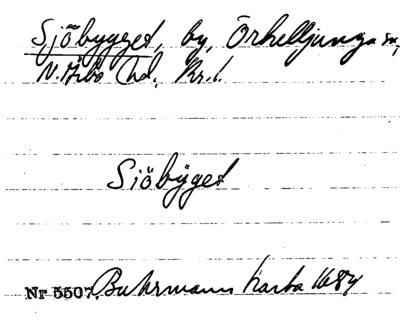 Sjöbygget, by, Örkelljunga sn,
N. Åsbo hd. Kr. l.
Siöbÿget
Nr 5507. Buhrmanns karta 1684